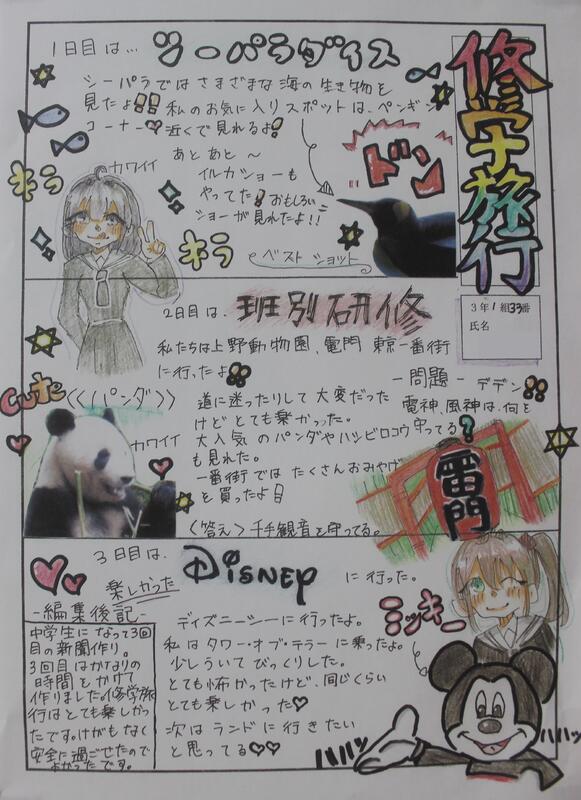 修学旅行
3年1組33番
氏名
1日目は… シーパラダイス
シーパラではさまざまな海の生き物を
見たよ!! 私のお気に入りスポットは、ペンギン
コーナー♥ 近くで見れるよ!
あとあと～
イルカショーも
やってた! おもしろい
ショーが見れたよ!!
カワイイ
キラ
キラ
ドン
ベストショット
2日目は、班別研修
私たちは上野動物園、雷門 東京一番街
に行ったよ!!
道に迷ったりして大変だった
けどとても楽かった。
大人気のパンダやハシビロコウ
も見れた。
一番街ではたくさんおみやげ
を買ったよ
Cute <<パンダ>>
カワイイ
－問題－ デデン!!
雷神、風神は、何を
守ってる?
雷門
〈答え〉千手観音を守ってる。
3日目は、
楽しかった
DiSNEY に行った。
ディズニーシーに行ったよ。
私はタワー・オブ・テラーに乗ったよ。
少しういてびっくりした。
とても怖かったけど、同じくらい
とても楽しかった♥
次はランドに行きたい
と思ってる♥♥
ミッキー
ハハッ
ハハッ
-編集後記-
中学生になって3回
目の新聞作り。
3回目はかなりの
時間をかけて
作りました。修学旅
行はとても楽しかっ
たです。けがもなく
安全に過ごせたので
よかったです。